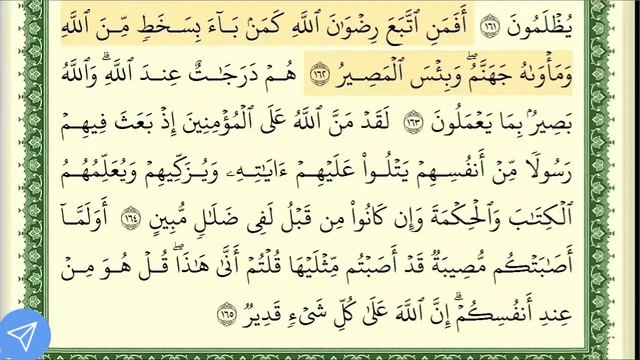 يُظۡلَمُونَ ١٦١ أَفَمَنِ ٱتَّبَعَ رِضۡوَٰنَ ٱللَّهِ كَمَنۢ بَآءَ بِسَخَطٖ مِّنَ ٱللَّهِ
وَمَأۡوَىٰهُ جَهَنَّمُۖ وَبِئۡسَ ٱلۡمَصِيرُ ١٦٢ هُمۡ دَرَجَٰتٌ عِندَ ٱللَّهِۗ وَٱللَّهُ
بَصِيرُۢ بِمَا يَعۡمَلُونَ ١٦٣ لَقَدۡ مَنَّ ٱللَّهُ عَلَى ٱلۡمُؤۡمِنِينَ إِذۡ بَعَثَ فِيهِمۡ
رَسُولٗا مِّنۡ أَنفُسِهِمۡ يَتۡلُواْ عَلَيۡهِمۡ ءَايَٰتِهِۦ وَيُزَكِّيهِمۡ وَيُعَلِّمُهُمُ
ٱلۡكِتَٰبَ وَٱلۡحِكۡمَةَ وَإِن كَانُواْ مِن قَبۡلُ لَفِي ضَلَٰلٖ مُّبِينٍ ١٦٤ أَوَلَمَّآ
أَصَٰبَتۡكُم مُّصِيبَةٞ قَدۡ أَصَبۡتُم مِّثۡلَيۡهَا قُلۡتُمۡ أَنَّىٰ هَٰذَاۖ قُلۡ هُوَ مِنۡ
عِندِ أَنفُسِكُمۡۗ إِنَّ ٱللَّهَ عَلَىٰ كُلِّ شَيۡءٖ قَدِيرٞ ١٦٥